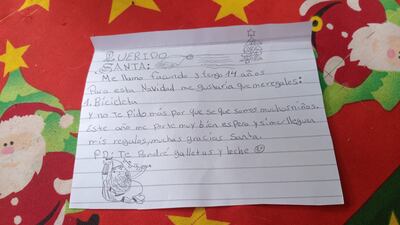 QUERIDO
SANTA:
Me llamo facundo y tengo 14 años
Para esta Navidad me gustaria que me regales:
1. Bicicleta
Y no te Pido más por que se que somos muchos niños.
Este año me porte muy bien espero y si me lleguen
mis regalos, muchas gracias Santa.
PD: Te Pondré galletas y leche